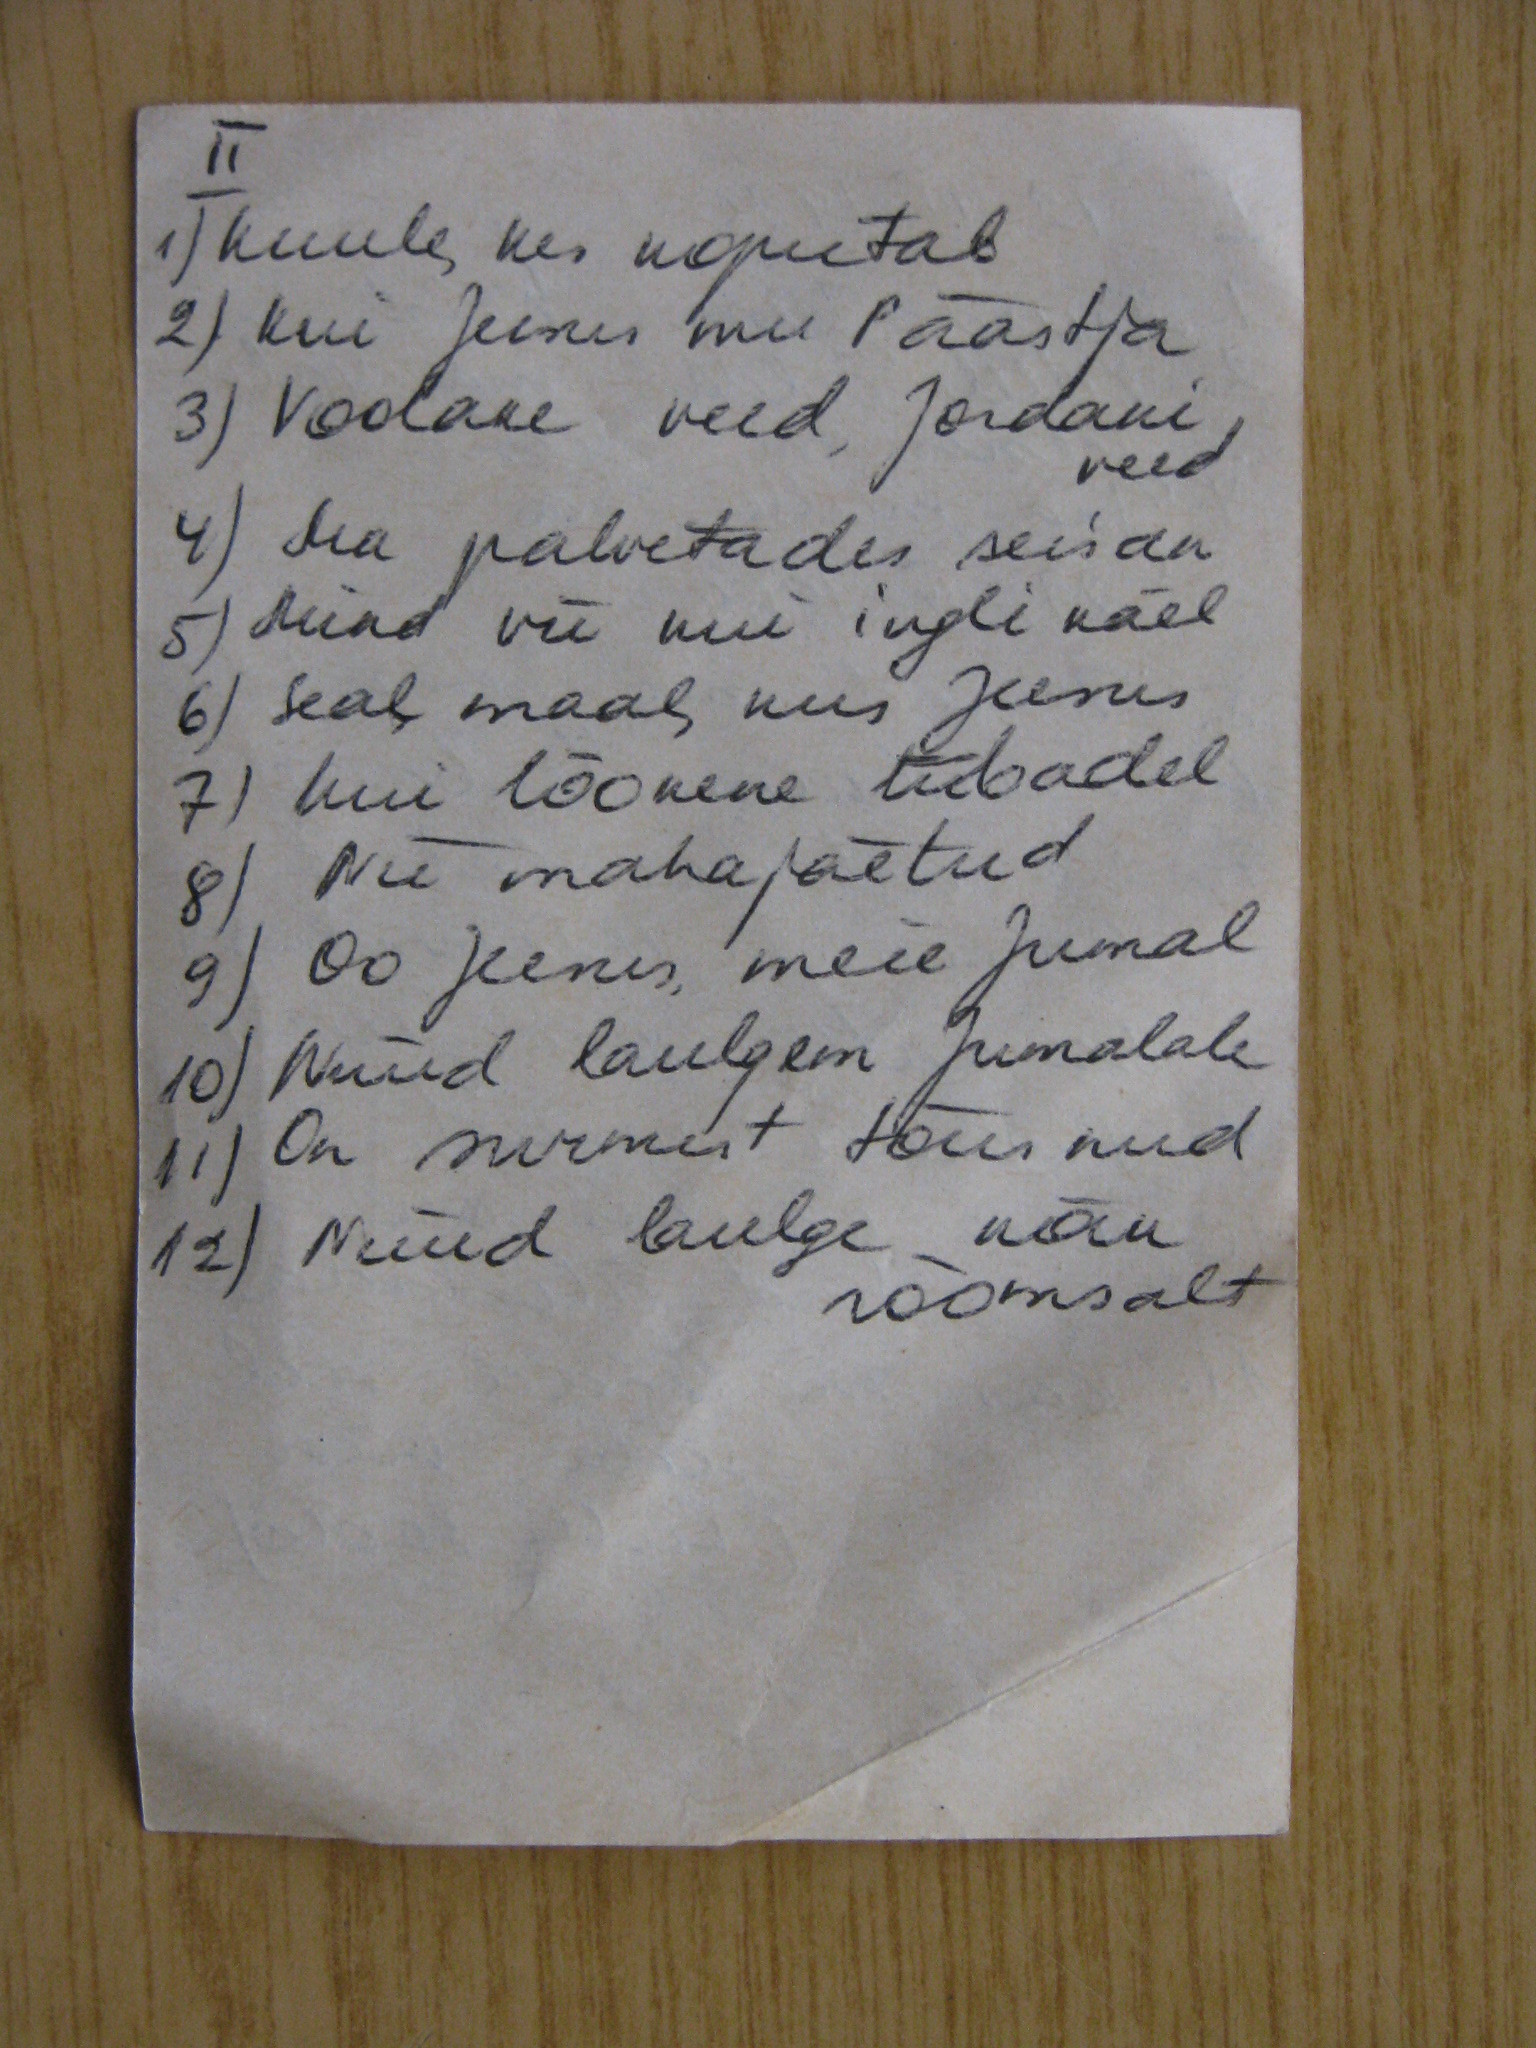 II
1) Kuule, kes koputab
2) Kui Jeesus mu Päästja
3) Voolake veed, Jordani
veed
4) Ma palvetades seisan
5) Mind vii kui ingli käel
6) Seal maal, kus Jeesus
7) Kui lõokene tiibadel
8) Nii mahajäetud
9) Oo Jeesus, meie Jumal
10) Nüüd laulgem Jumalale
11) On surmast tõusnud
12) Nüüd laulge kõik
rõõmsalt